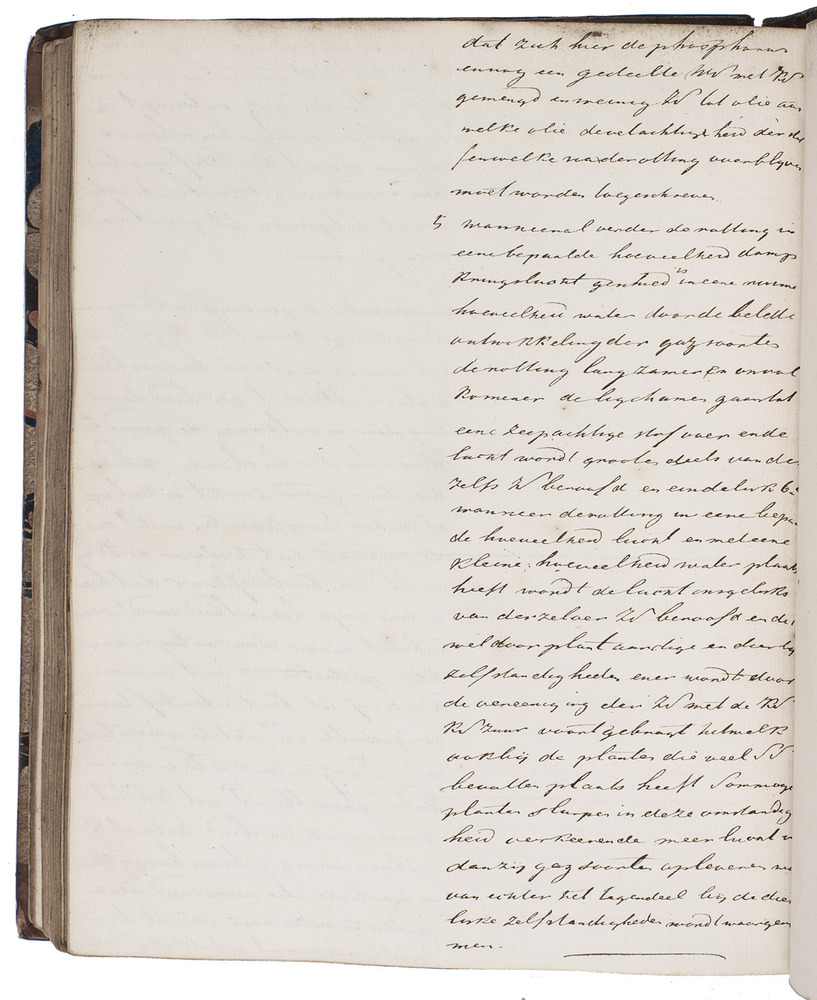 dat zich hier de phosphorus
ennog een gedeelte WS met KS
gemengd en weinig ZS tot olie aan
welke olie de vetachtigheid der
welke na de rotting overblyven
moet worden toegeschreven.
5 wanneer al verder de rotting in
eene bepaalde hoeveelheid damp
kringslucht geschied is in eene ruime
hoeveelheid water door de belette
ontwikkeling der gaz soorten
de rotting langzamer en onvol
komener de ligchamen gaan tot
eene zeepachtige stof over en de
lucht wordt grootendeels van de
zelfs ZS beroofd en eindelijk
wanneer de rotting in eene bepaal
de hoeveelheid lucht en met eene
kleine hoeveelheid water plaats
heeft wordt de lucht insgelijks
van derzelver ZS beroofd en de
wel door plantaardige en dierly
zelfstandigheden ener wordt door
de vereeniging der ZS met de KS
KS zuur voortgebragt hetwelk
ook bij de planten die veel SS
bevatten plaats heeft Sommige
planten slurpen in deze omstandig
heid verkeerende meer lucht in
dan zij gaz soorten opleveren
van echter het tegendeel bij de dier
lijke zelfstandigheden wordt waargeno
men.